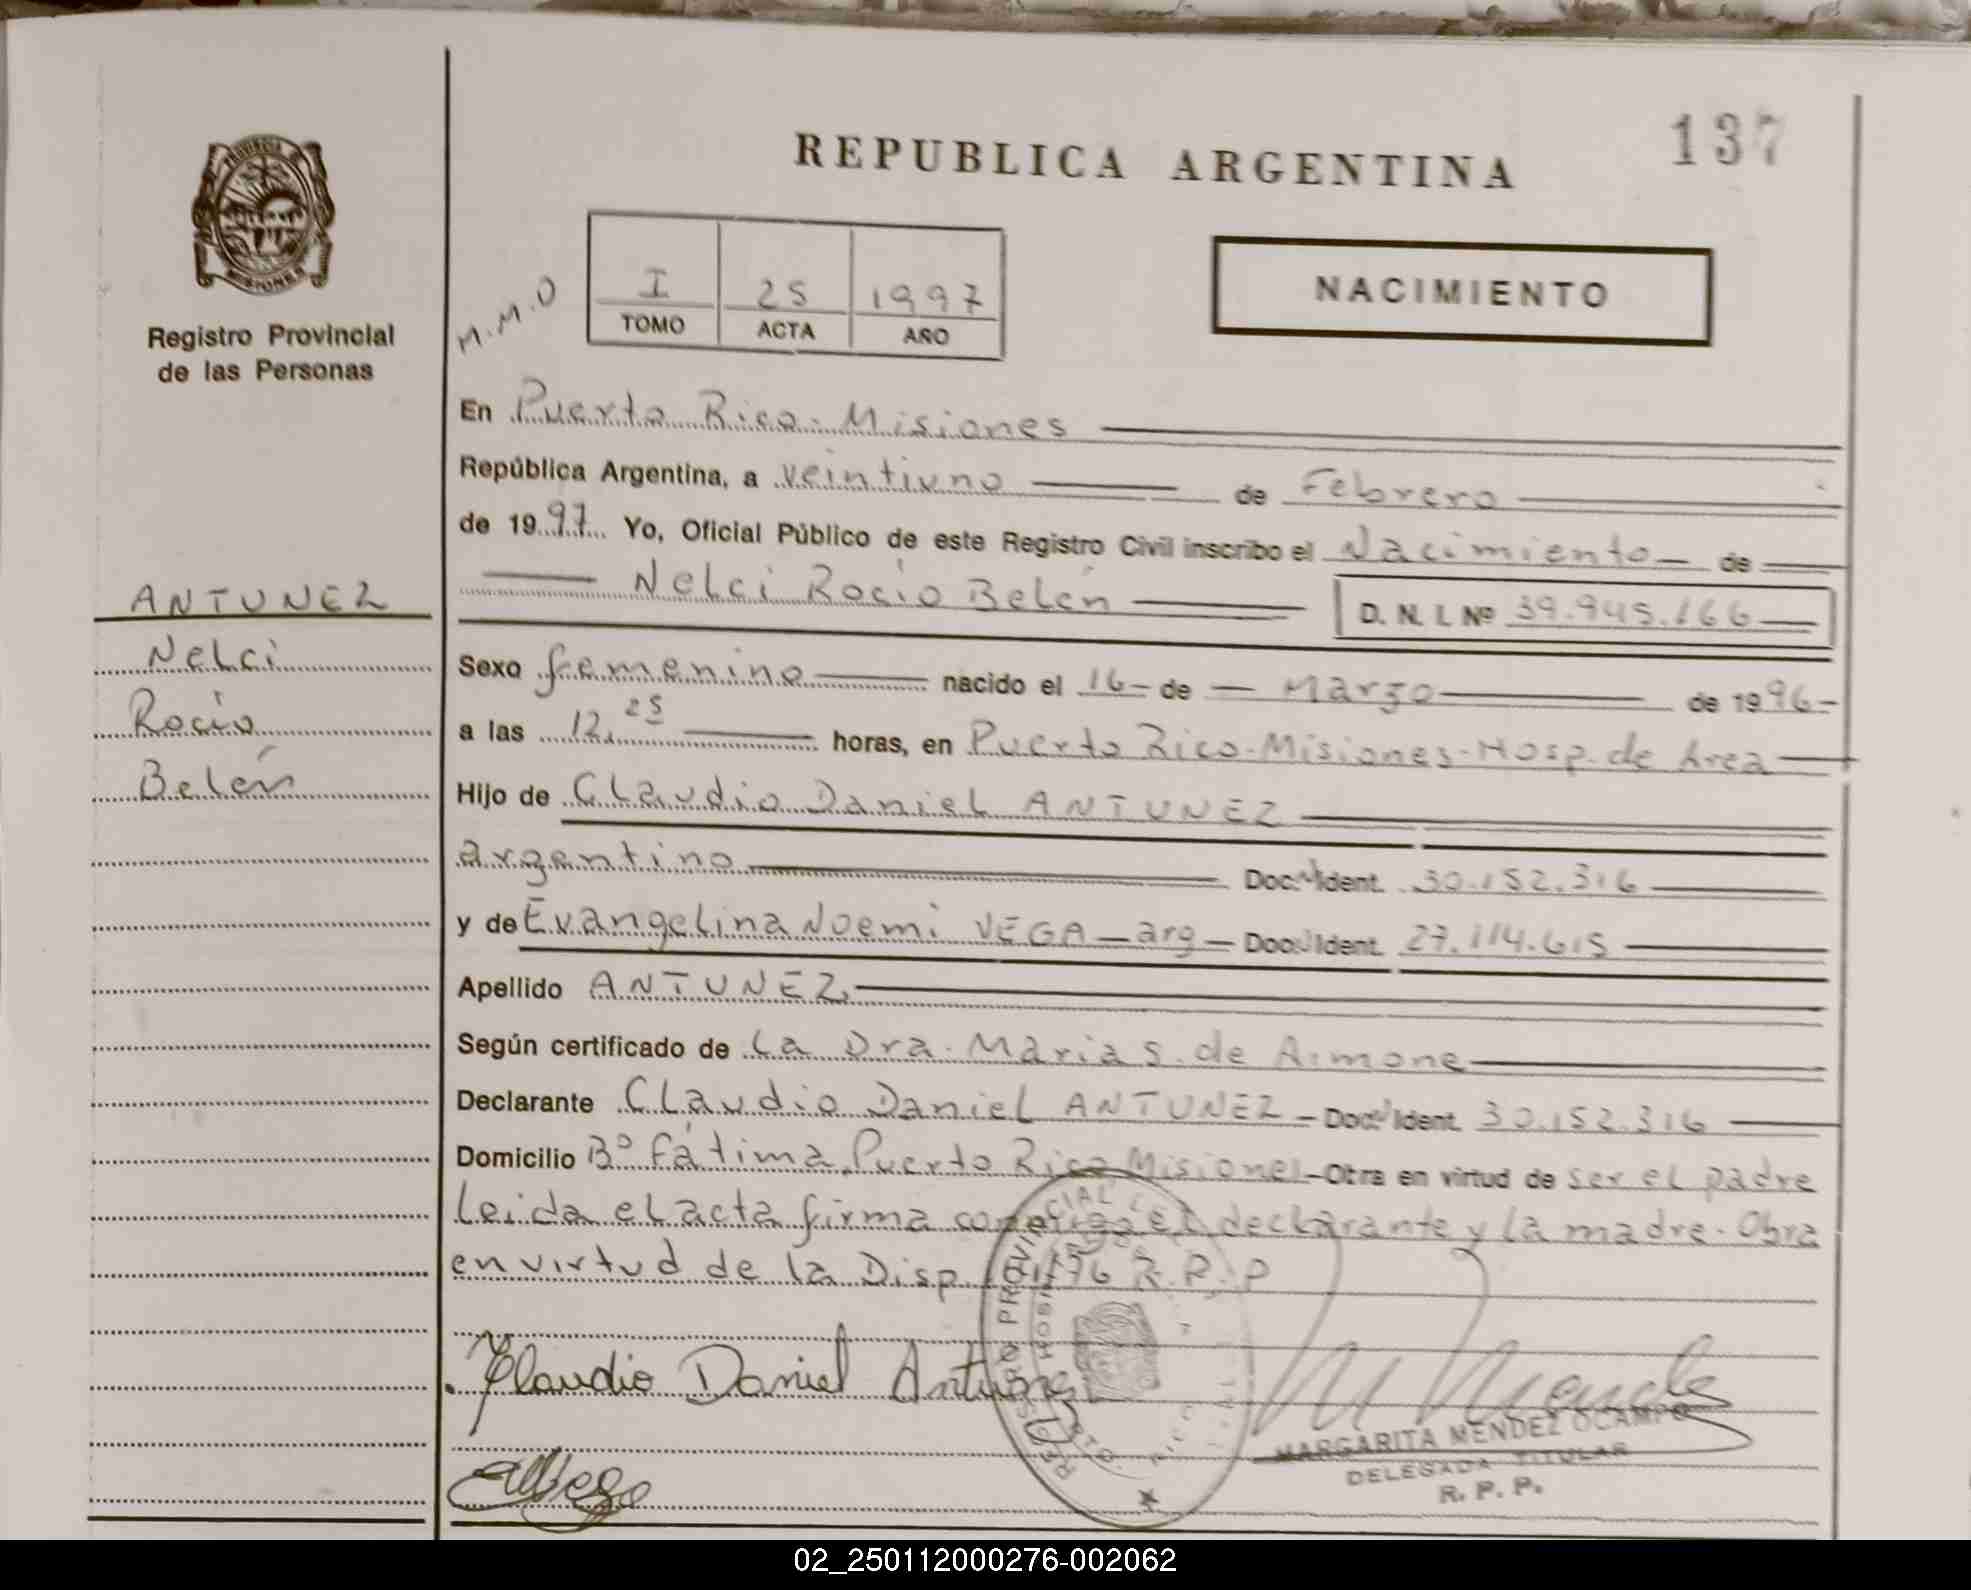 137
REPUBLICA ARGENTINA
PROVINCIA DE
MISIONES
Registro Provincial
de las Personas
M.M.O
I 25 1997
TOMO ACTA AÑO
NACIMIENTO
En Puerto Rico - Misiones
República Argentina, a veintiuno de Febrero
de 1997 Yo, Oficial Público de este Registro Civil inscribo el Nacimiento de
Nelci Rocío Belén D. N. I. Nº 39.945.166
ANTUNEZ
Nelci
Rocío
Belén
Sexo femenino nacido el 16 de Marzo de 1996
a las 12,25 horas, en Puerto Rico-Misiones-Hosp. de Area
Hijo de Claudio Daniel ANTUNEZ
argentino Doc. Ident. 30.152.316
y de Evangelina Noemi VEGA - arg - Doc. Ident. 27.114.615
Apellido ANTUNEZ
Según certificado de La Dra. Maria S. de Aimone
Declarante Claudio Daniel ANTUNEZ - Doc. Ident. 30.152.316
Domicilio Bº Fátima Puerto Rico Misiones - Otra en virtud de ser el padre
Leida el acta firma conmigo el declarante y la madre. Obra
en virtud de la Disp. R.P.P
Claudio Daniel Antunez
EVega
MARGARITA MENDEZ OCAMPO
DELEGADA TITULAR
R. P. P.
02_250112000276-002062